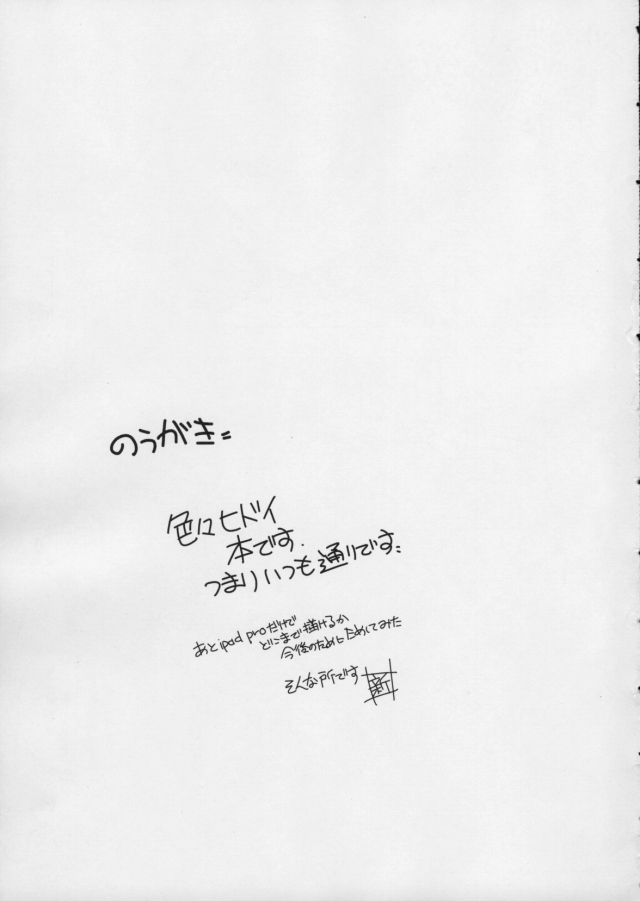 のうがき=
色々ヒドイ
本です.
つまりいつも通りです=
あとipad proだけで
どこまで描けるか
今後のためにためしてみた
そんな所です